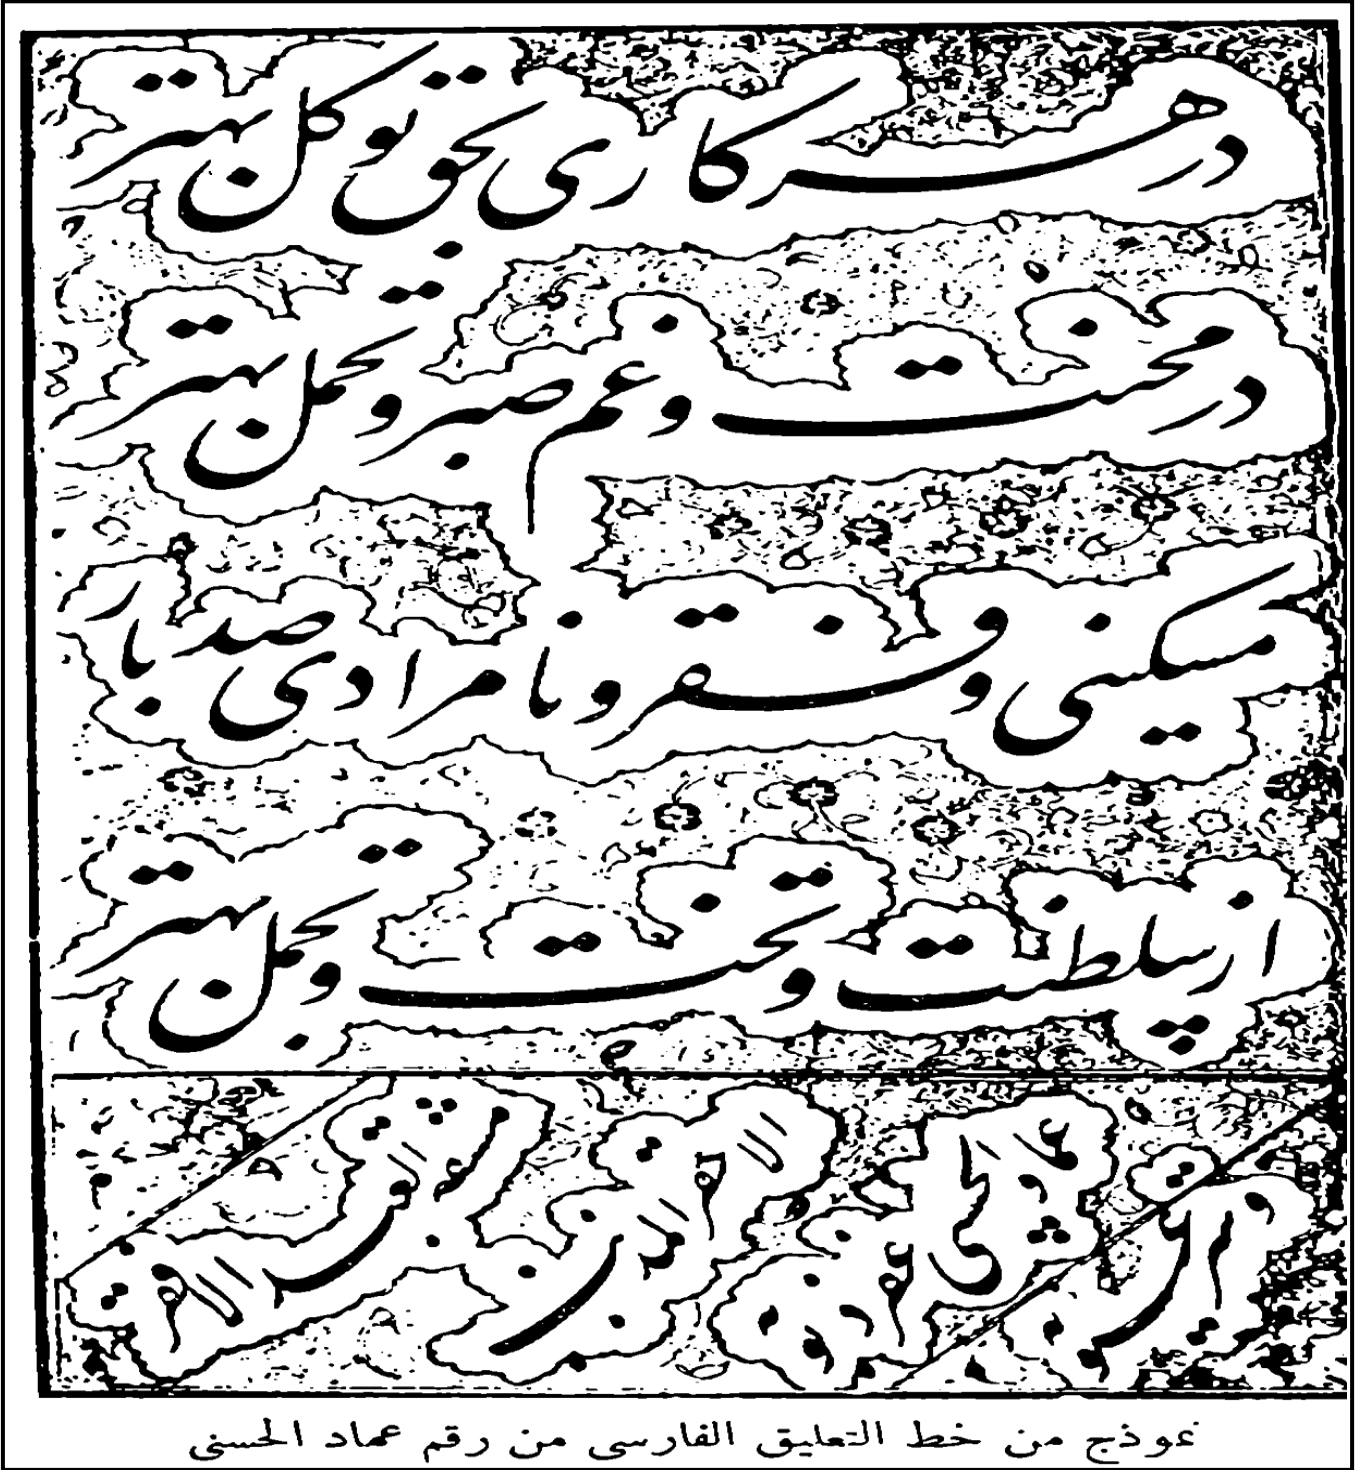 در هر کاری بحق توکلن بهتر
در محنت و غم صبر و تحملن بهتر
مسکینی و فقر و نا مرادی صد بار
از سلطنت و تخت و تجملن بهتر
نموذج من خط التعليق الفارسى من رقم عماد الحسنى